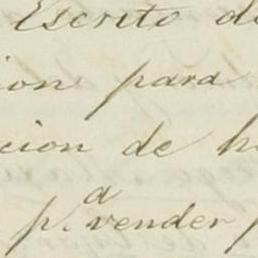 Escrito de
ion para
cion de h
p.ª vender p